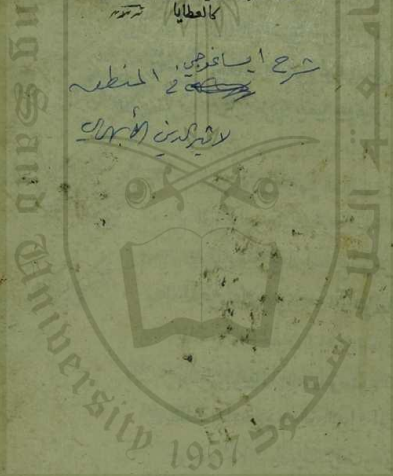 كالعطايا
شرح ايساغوجي في المنطق
لاثير الدين الأبهري
King Saud University
1957
سعود